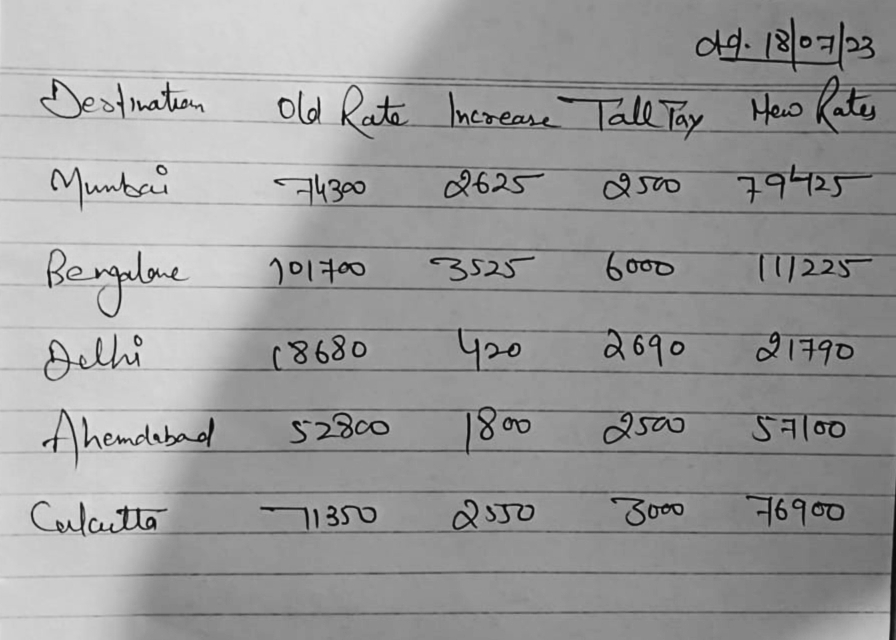 dtd. 18/07/23
Destination Old Rate Increase Tall Tax New Rates
Mumbai 74300 2625 2500 79425
Bengalore 101700 3525 6000 111225
Delhi 18680 420 2690 21790
Ahemdabad 52800 1800 2500 57100
Culcutta 71350 2550 3000 76900